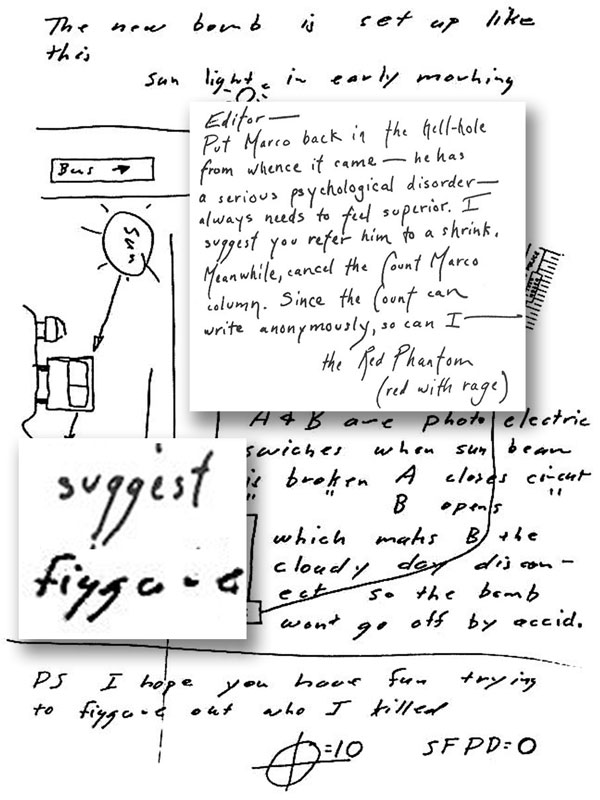 The new bomb is set up like
this
sun light in early morning
Bus →
Sun
Editor —
Put Marco back in the hell-hole
from whence it came — he has
a serious psychological disorder —
always needs to feel superior. I
suggest you refer him to a shrink.
Meanwhile, cancel the Count Marco
column. Since the Count can
write anonymously, so can I —
the Red Phantom
(red with rage)
A & B are photo electric
swiches when sun beam
is broken A closes circut
" " B opens "
which maks B the
cloudy day discon-
ect so the bomb
wont go off by accid.
suggest
fiygure
PS I hope you have fun trying
to fiygure out who I killed
=10 SFPD=0